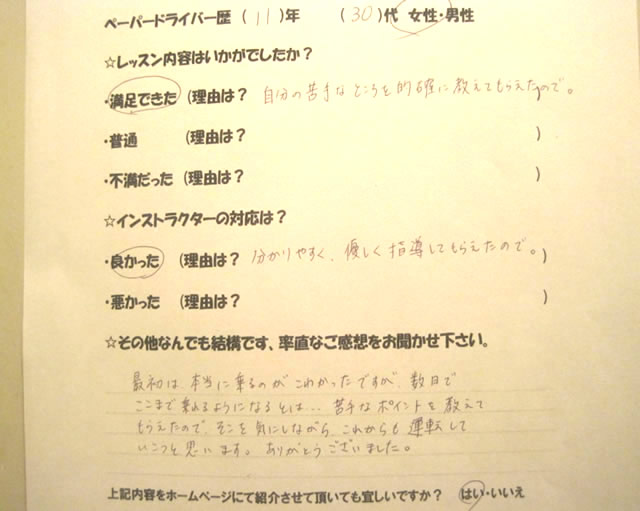 ペーパードライバー歴 (11)年 (30)代 女性・男性
☆レッスン内容はいかがでしたか？
・満足できた (理由は？ 自分の苦手なところを的確に教えてもらえたので。)
・普通 (理由は？ )
・不満だった (理由は？ )
☆インストラクターの対応は？
・良かった (理由は？ 分かりやすく、優しく指導してもらえたので。)
・悪かった (理由は？ )
☆その他なんでも結構です、率直なご感想をお聞かせ下さい。
最初は本当に乗るのがこわかったですが、数日で
ここまで乗れるようになるとは... 苦手なポイントを教えて
もらえたので、そこを気にしながら、これからも運転して
いこうと思います。ありがとうございました。
上記内容をホームページにて紹介させて頂いても宜しいですか？ はい・いいえ